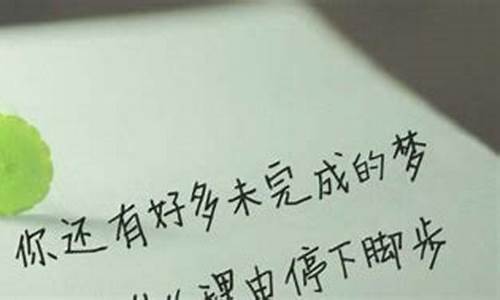 你还有好多未完成的梦
理由停下脚步